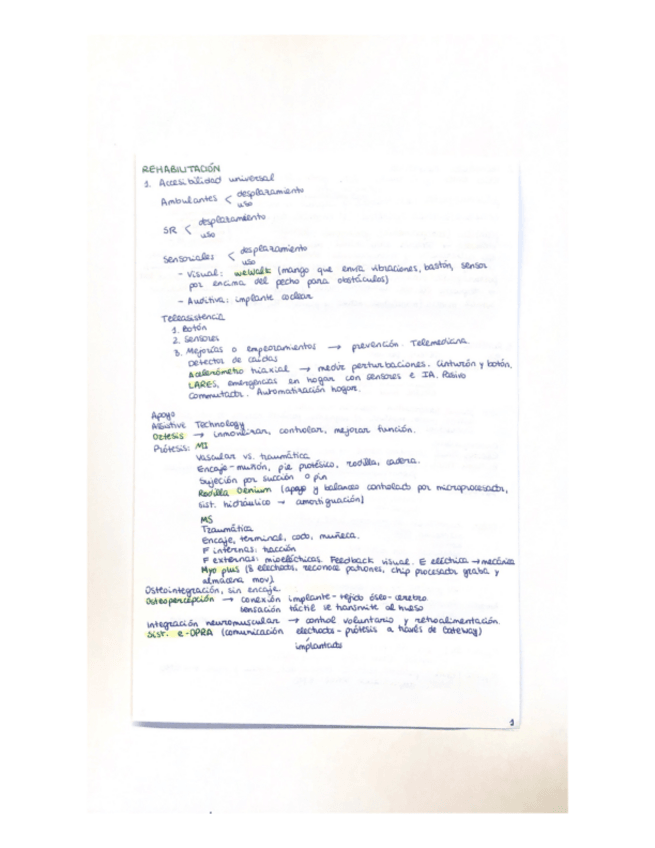 REHABILITACIÓN
1. Accesibilidad universal
Ambulantes < desplazamiento
uso
SR < desplazamiento
uso
Sensoriales < desplazamiento
uso
- Visual: weWalk (mango que envía vibraciones, bastón, sensor
por encima del pecho para obstáculos)
- Auditiva: implante coclear
Teleasistencia
1. Botón
2. Sensores
3. Mejorías o empeoramientos → prevención. Telemedicina.
Detector de caídas
Acelerómetro triaxial → medir perturbaciones. Cinturón y botón.
LARES, emergencias en hogar con sensores e IA. Pasivo
Conmutador. Automatización hogar.
Apoyo
Assistive Technology
Ortesis → inmovilizar, controlar, mejorar función.
Prótesis: MI
Vascular vs. traumática
Encaje-muñón, pie protésico, rodilla, cadera.
Sujeción por succión o pin
Rodilla Genium (apoyo y balanceo controlado por microprocesador,
sist. hidráulico → amortiguación)
MS
Traumática
Encaje, terminal, codo, muñeca.
F internas: tracción
F externas: mioeléctricas. Feedback visual. E eléctrica → mecánica
Myo plus (8 electrodos, reconoce patrones, chip procesador graba y
almacena mov)
Osteointegración, sin encaje.
Osteopercepción → conexión implante-tejido óseo-cerebro.
sensación táctil se transmite al hueso
Integración neuromuscular → control voluntario y retroalimentación.
Sist. e-OPRA (comunicación electrodos-prótesis a través de Gateway)
implantados
1